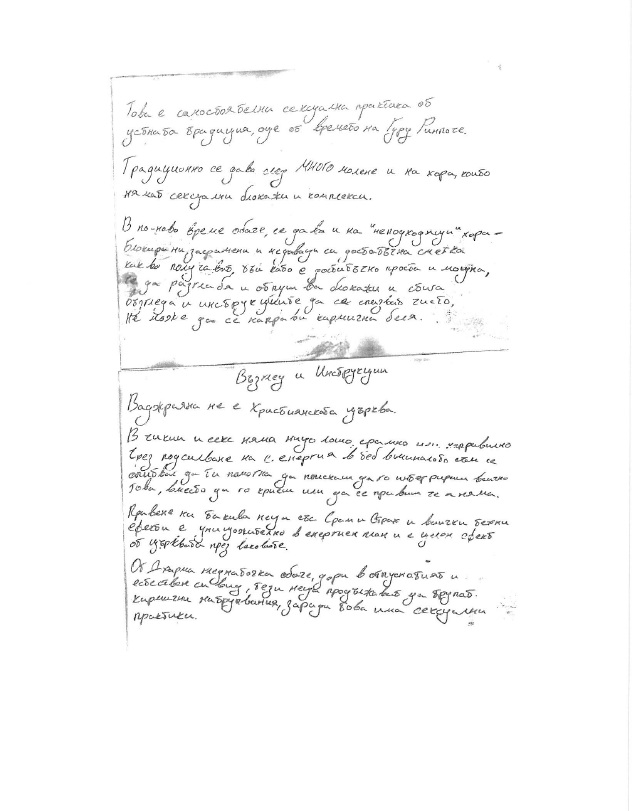 Това е самостоятелна сексуална практика от
устната традиция, още от времето на Гуру Ринпоче.
Традиционно се дава след МНОГО молене и на хора, които
нямат сексуални блокажи и комплекси.
В по-ново време обаче, се дава и на "неподходящи" хора –
блокирани, засрамени и недаващи си достатъчна сметка
какво получават, тъй като е достатъчно проста и мощна,
да разглоби и отпуши блокажи и стига
възгледа и инструкциите да се спазват чисто,
не може да се направи кармична беля.
Възглед и Инструкции
Ваджраяна не е Християнската църква.
В чикии и секс няма нищо лошо, срамно или неправилно
Чрез подсилване на с. енергия в теб винаги съм се
опитвал да ти помогна да поискаш да го интегрираш всичко
това, вместо да го криеш или да се правиш че я няма.
Правене на такива неща със Срам и Страх и всички техни
ефекти е унищожително в енергиен план и е целен ефект
от църквата през вековете.
От Дхарма гледна точка обаче, дори в отпуснатият и
естествен си вид, тези неща продължават да трупат
кармични натрупвания, заради това има сексуални
практики.